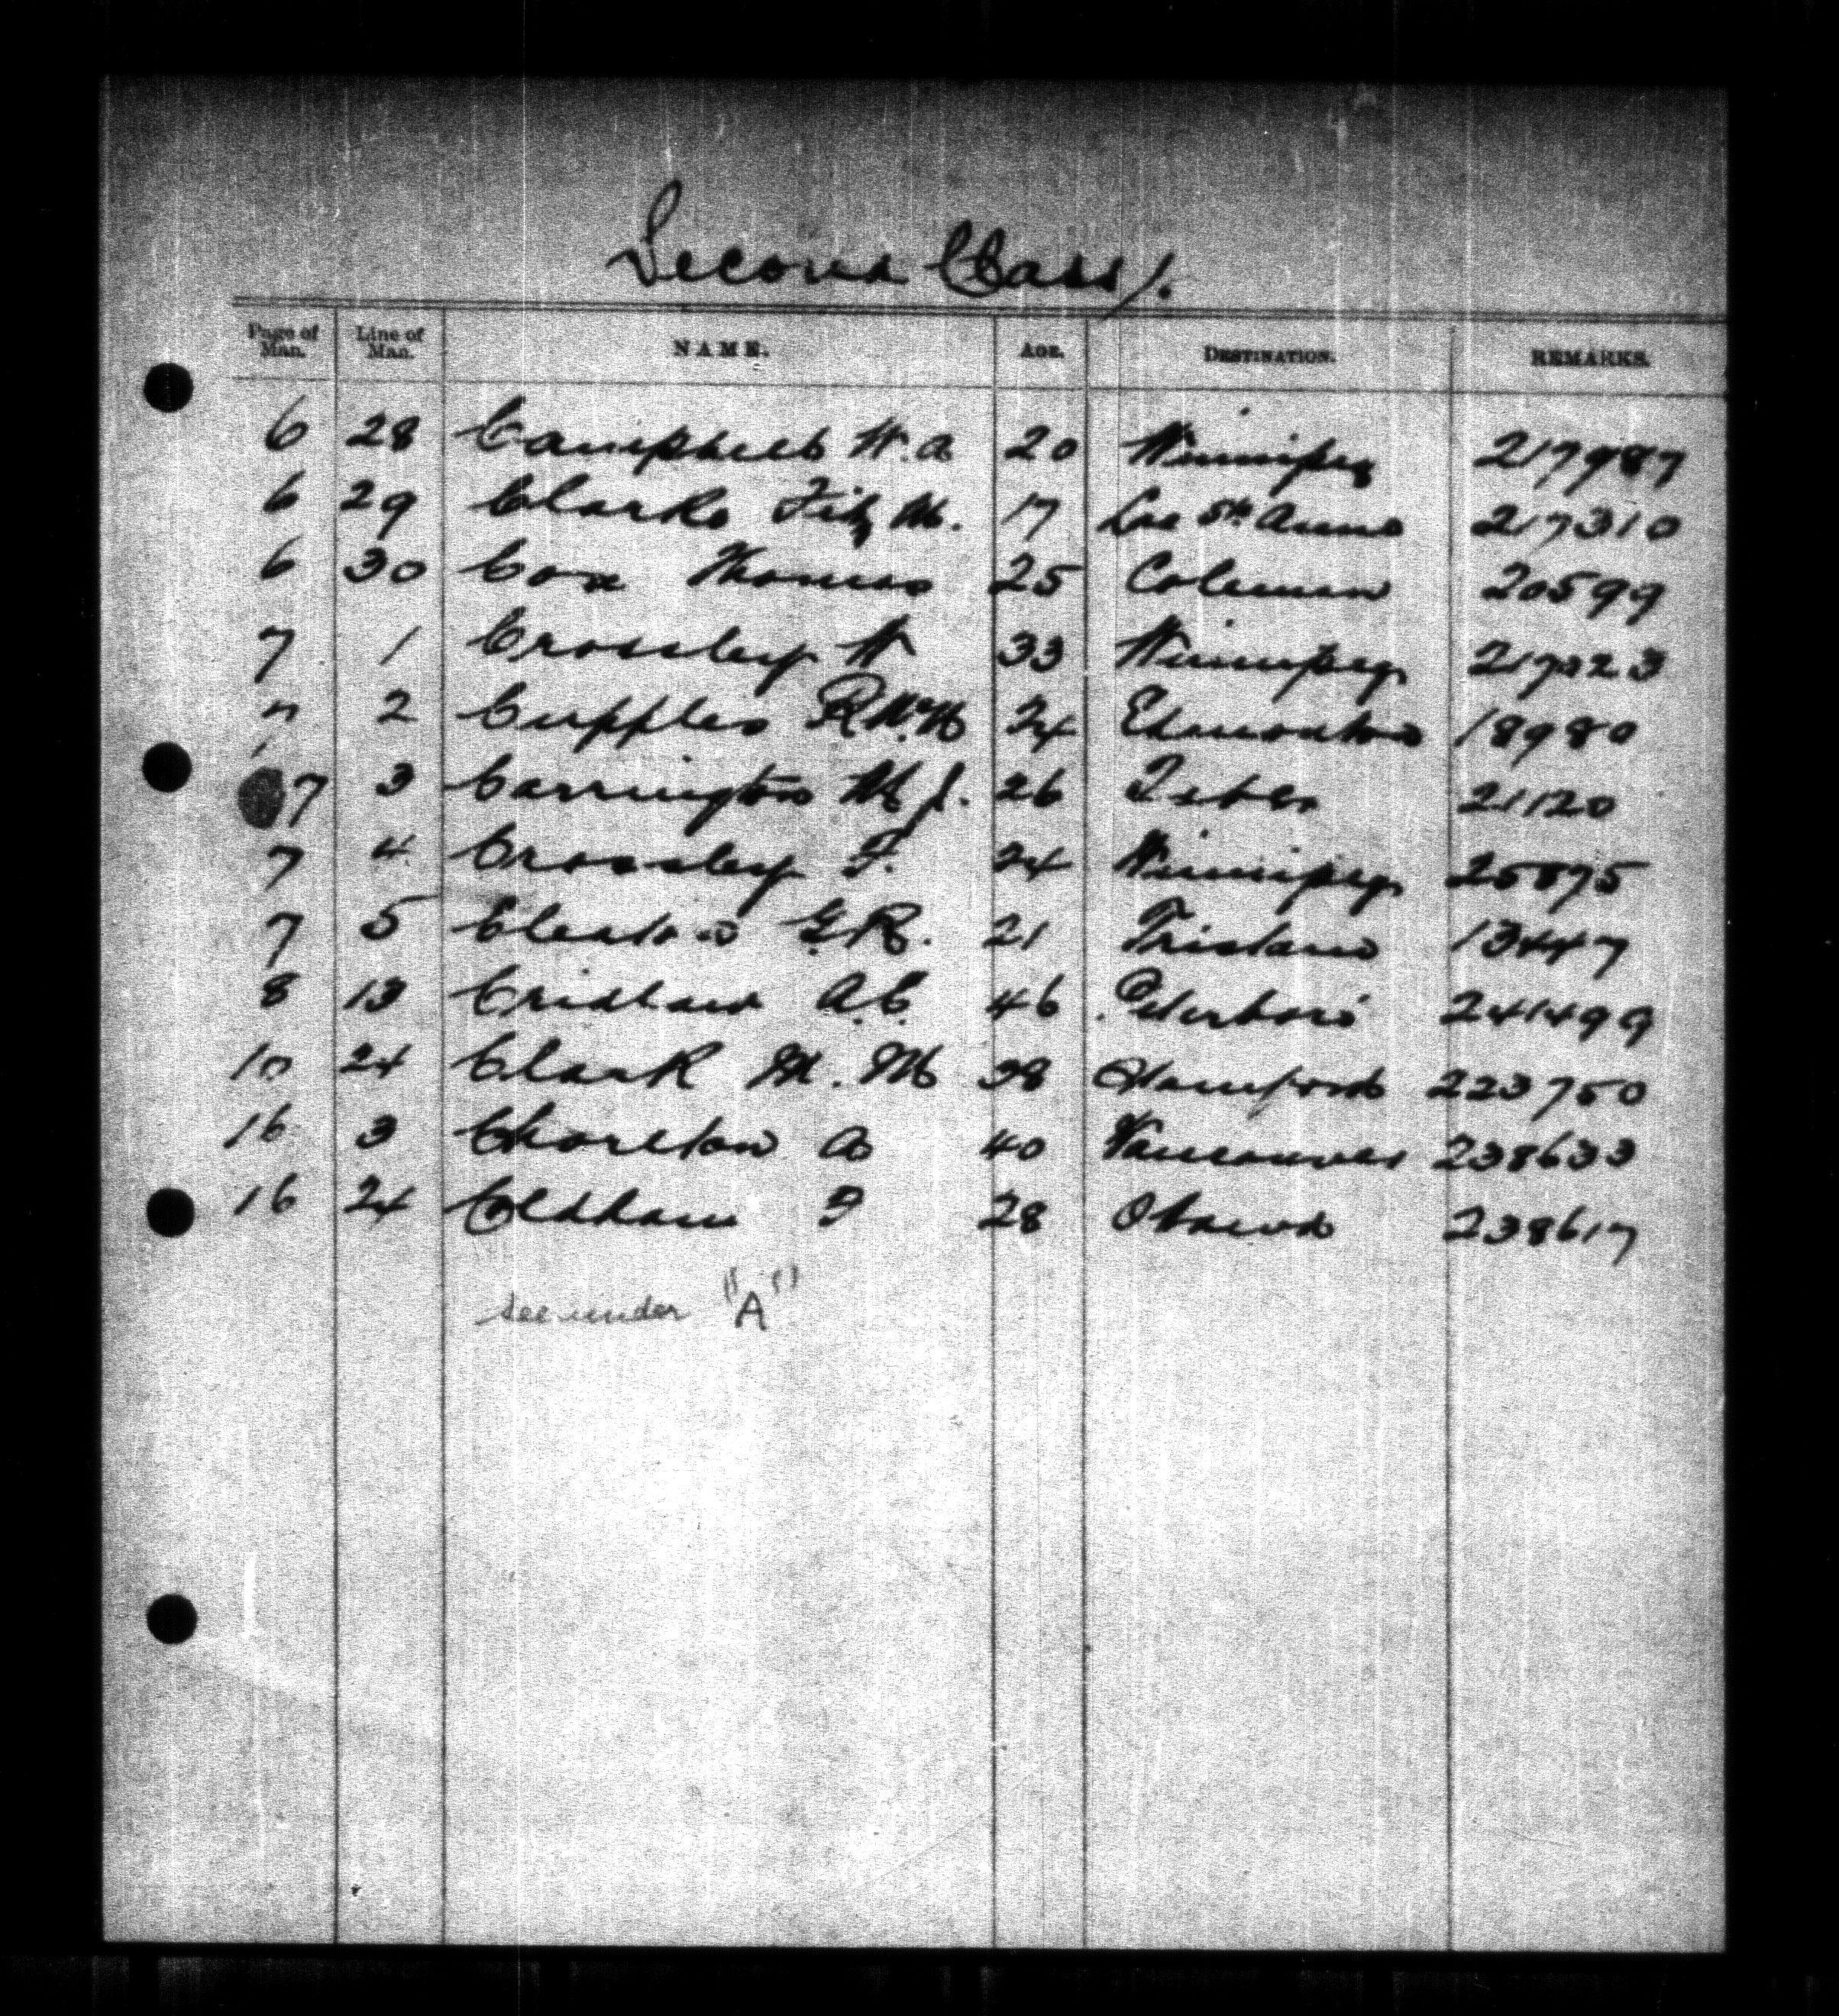 Second Class/.
Page of Man. Line of Man. NAME. AGE. DESTINATION. REMARKS.
6 28 Campbell W.A 20 Winnipeg 217987
6 29 Clarke Fitz M. 17 Lac Ste Anne 217310
6 30 Cox Thomas 25 Coleman 20599
7 1 Crossley W 33 Winnipeg 217323
7 2 Cupples R.W.H 24 Edmonton 18980
7 3 Carrington M J. 26 21120
7 4 Crossley F. 24 Winnipeg 25875
7 5 G.R. 21 13447
8 13 Cridland A.C. 46 Peterboro 241499
10 24 Clark M. M 38 223750
16 3 Chorlton A 40 Vancouver 238633
16 24 Oldham F 28 238617
see under "A"